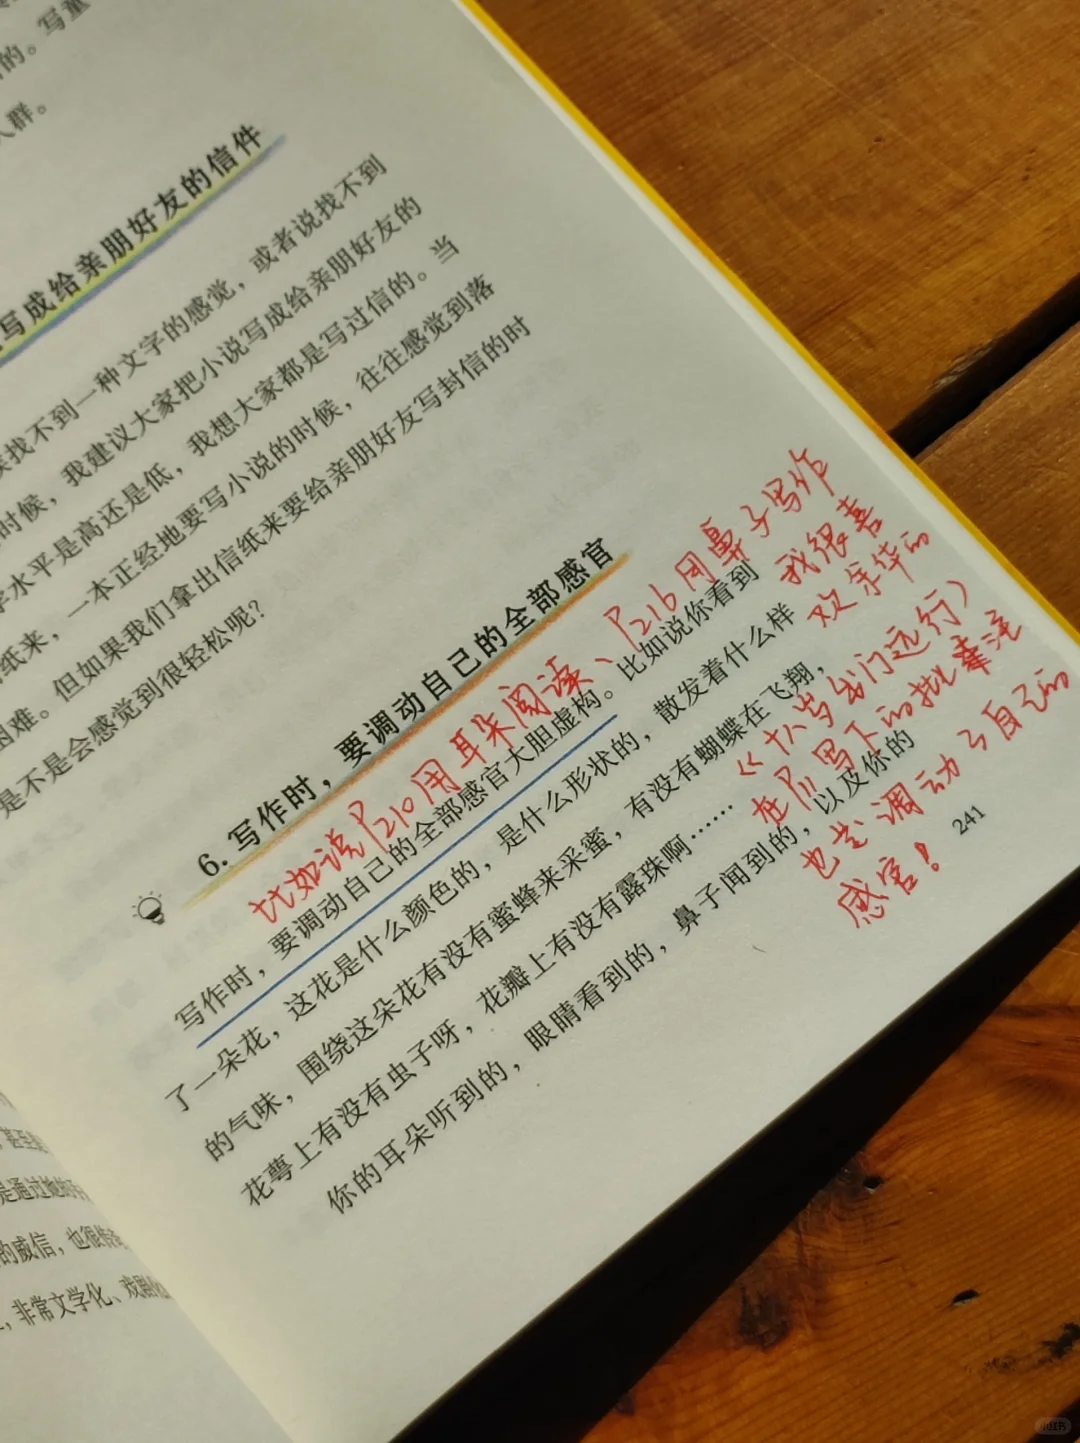 的。写童
人群。
写成给亲朋好友的信件
找不到一种文字的感觉，或者说找不到
时候，我建议大家把小说写成给亲朋好友的
学水平是高还是低，我想大家都是写过信的。当
纸来，一本正经地要写小说的时候，往往感觉到落
困难。但如果我们拿出信纸来要给亲朋好友写封信的时
是不是会感觉到很轻松呢？
6. 写作时，要调动自己的全部感官
比如说P210用耳朵阅读、P216用鼻子写作
写作时，要调动自己的全部感官大胆虚构。比如说你看到
了一朵花，这花是什么颜色的，是什么形状的，散发着什么样
的气味，围绕这朵花有没有蜜蜂来采蜜，有没有蝴蝶在飞翔，
花萼上有没有虫子呀，花瓣上有没有露珠啊……
你的耳朵听到的，眼睛看到的，鼻子闻到的，以及你的
我很喜
欢余华的
《十八岁出门远行》
在P1写下的批注
也是调动了自己的
感官！
241
是通过她的
的威信，也很
非常文学化、戏剧
小红书